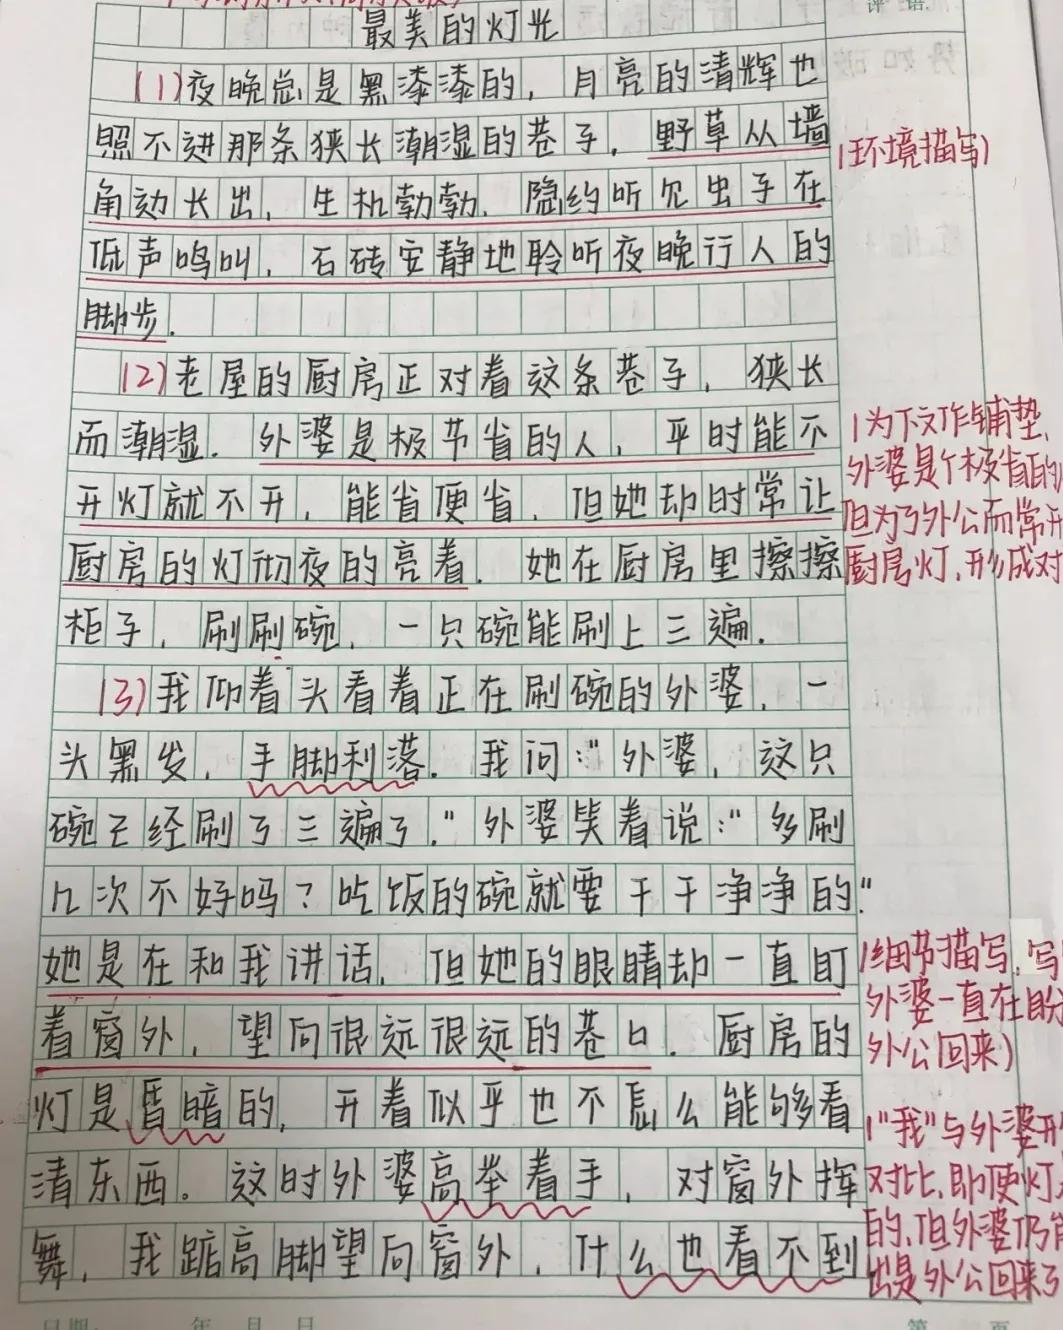 最美的灯光
评 语
(1)夜晚总是黑漆漆的，月亮的清辉也
照不进那条狭长潮湿的巷子，野草从墙
角边长出，生机勃勃，隐约听见虫子在
低声鸣叫，石砖安静地聆听夜晚行人的
脚步.
(环境描写)
(2)老屋的厨房正对着这条巷子，狭长
而潮湿.外婆是极节省的人，平时能不
开灯就不开，能省便省，但她却时常让
厨房的灯彻夜的亮着.她在厨房里擦擦
柜子，刷刷碗，一只碗能刷上三遍.
(为下文作铺垫，
外婆是个极省的
但为了外公而常开
厨房灯，形成对
(3)我仰着头看着正在刷碗的外婆，一
头黑发，手脚利落.我问："外婆，这只
碗已经刷了三遍了."外婆笑着说："多刷
几次不好吗？吃饭的碗就要干干净净的."
她是在和我讲话，但她的眼睛却一直盯
着窗外，望向很远很远的巷口.厨房的
灯是昏暗的，开着似乎也不怎么能够看
清东西。这时外婆高举着手，对窗外挥
舞，我踮高脚望向窗外，什么也看不到
(细节描写，写
外婆一直在盼
外公回来)
("我"与外婆形
对比，即使灯
的，但外婆仍能
出是外公回来了
日期： 年 月 日
第 页